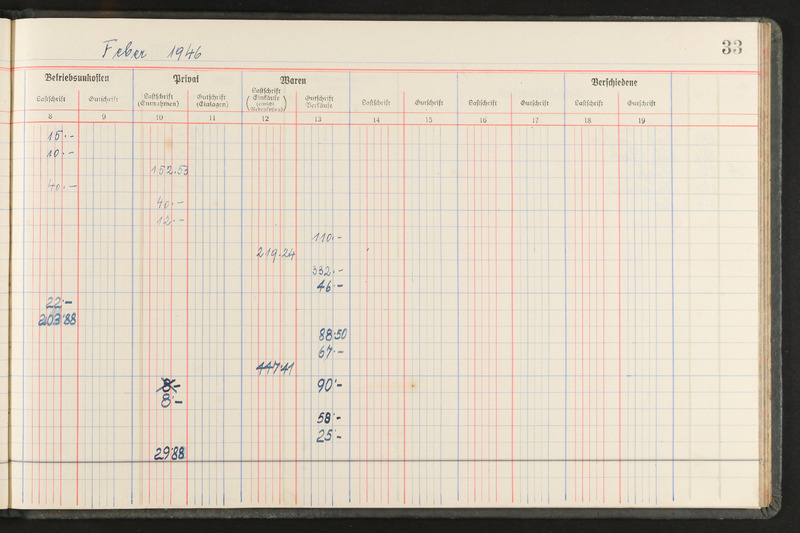 Feber 1946 33
Betriebsunkosten Privat Waren Verschiedene
Lastschrift Gutschrift Lastschrift (Entnahmen) Gutschrift (Einlagen) Lastschrift Einkäufe Gutschrift Verkäufe Lastschrift Gutschrift Lastschrift Gutschrift Lastschrift Gutschrift
8 9 10 11 12 13 14 15 16 17 18 19
15.-
10.-
152.53
40.-
40.-
12.-
110.-
219.24
332.-
46.-
22.-
203.88
88.50
67.-
447.41
8.- 90.-
8.-
58.-
25.-
29.88